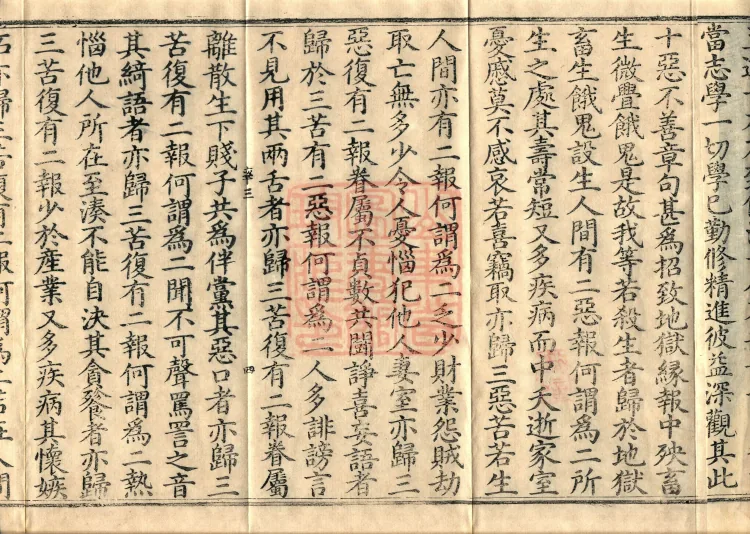 當志學一切學已勤修精進彼益深觀其此
十惡不善章句甚爲招致地獄緣報中殃畜
生微舋餓鬼是故我等若殺生者歸於地獄
畜生餓鬼設生人間有二惡報何謂爲二所
生之處其壽常短又多疾病而中夭逝家室
憂慼莫不感哀若喜竊取亦歸三惡苦若生
人間亦有二報何謂爲二乏少財業怨賊劫
取亡無多少令人憂惱犯他人妻室亦歸三
惡復有二報眷屬不貞數共鬪諍喜妄語者
歸於三苦有二惡報何謂爲二人多誹謗言
不見用其兩舌者亦歸三苦復有二報眷屬
三 四
離散生下賤子共爲伴黨其惡口者亦歸三
苦復有二報何謂爲二聞不可聲罵詈之音
其綺語者亦歸三苦復有二報何謂爲二熱
惱他人所在至湊不能自決其貪餮者亦歸
三苦復有二報少於産業又多疾病其懷嫉